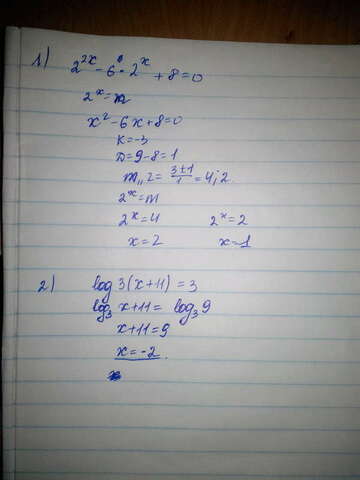 1) 2^2x - 6 · 2^x + 8 = 0
2^x = m
x² - 6x + 8 = 0
K = -3
D = 9 - 8 = 1
m₁,₂ = (3 ± 1)/1 = 4; 2
2^x = m
2^x = 4   2^x = 2
x = 2   x = 1
2) log 3(x+11) = 3
log₃ x+11 = log₃ 9
x+11 = 9
x = -2.